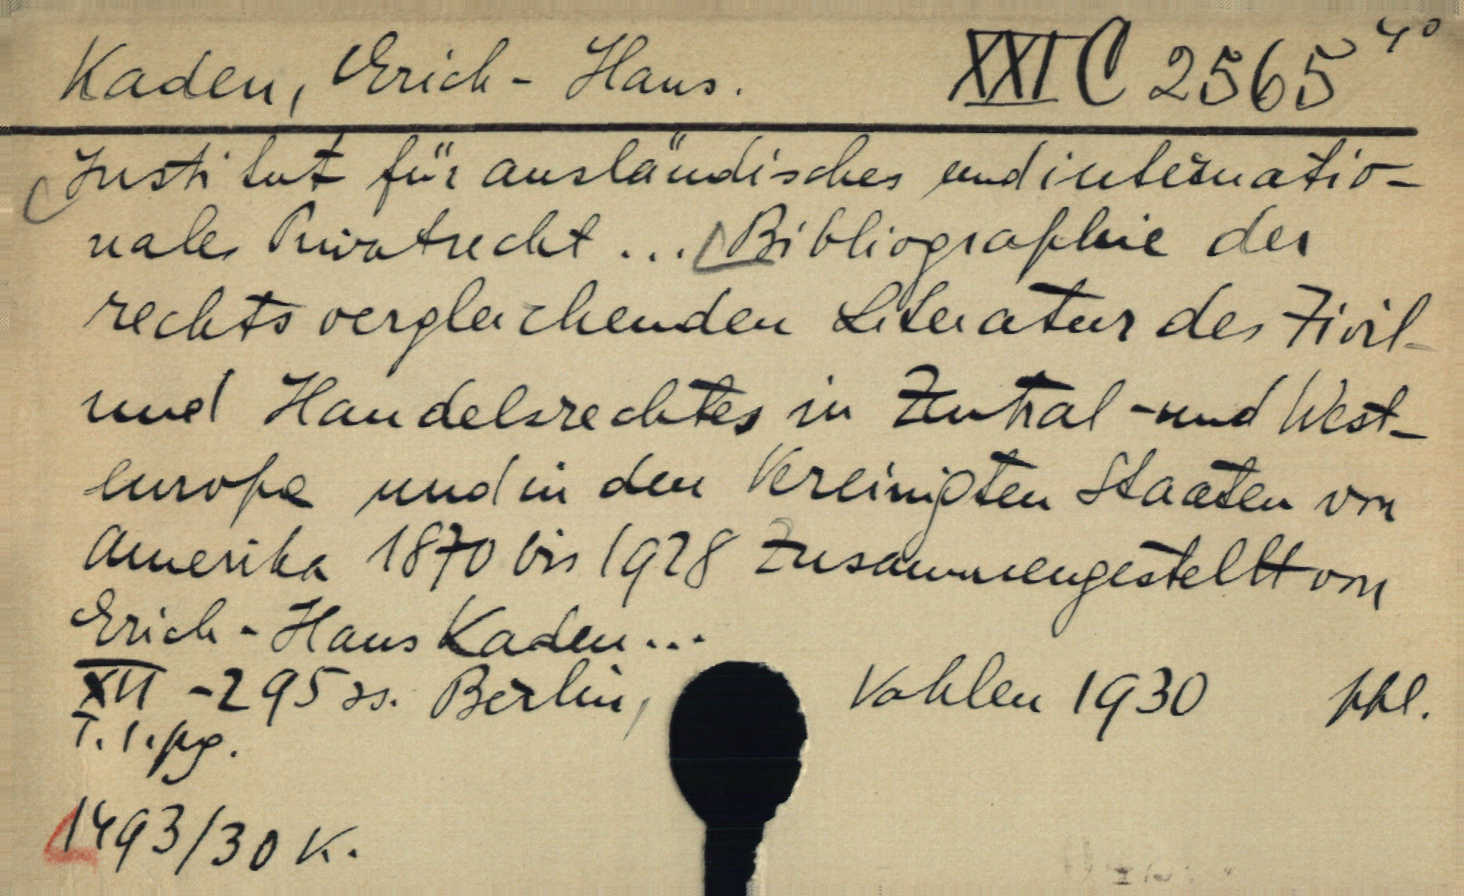 Kaden, Erich-Hans. XXI C 2565 4°
Institut für ausländisches und internatio-
nales Privatrecht ... Bibliographie der
rechtsvergleichenden Literatur des Zivil-
und Handelsrechtes in Zentral- und West-
europa und in den Vereinigten Staaten von
Amerika 1870 bis 1928 zusammengestellt von
Erich-Hans Kaden...
XII - 295 ss. Berlin, Vahlen 1930 ppl.
T. 1. pg.
1493/30 K.